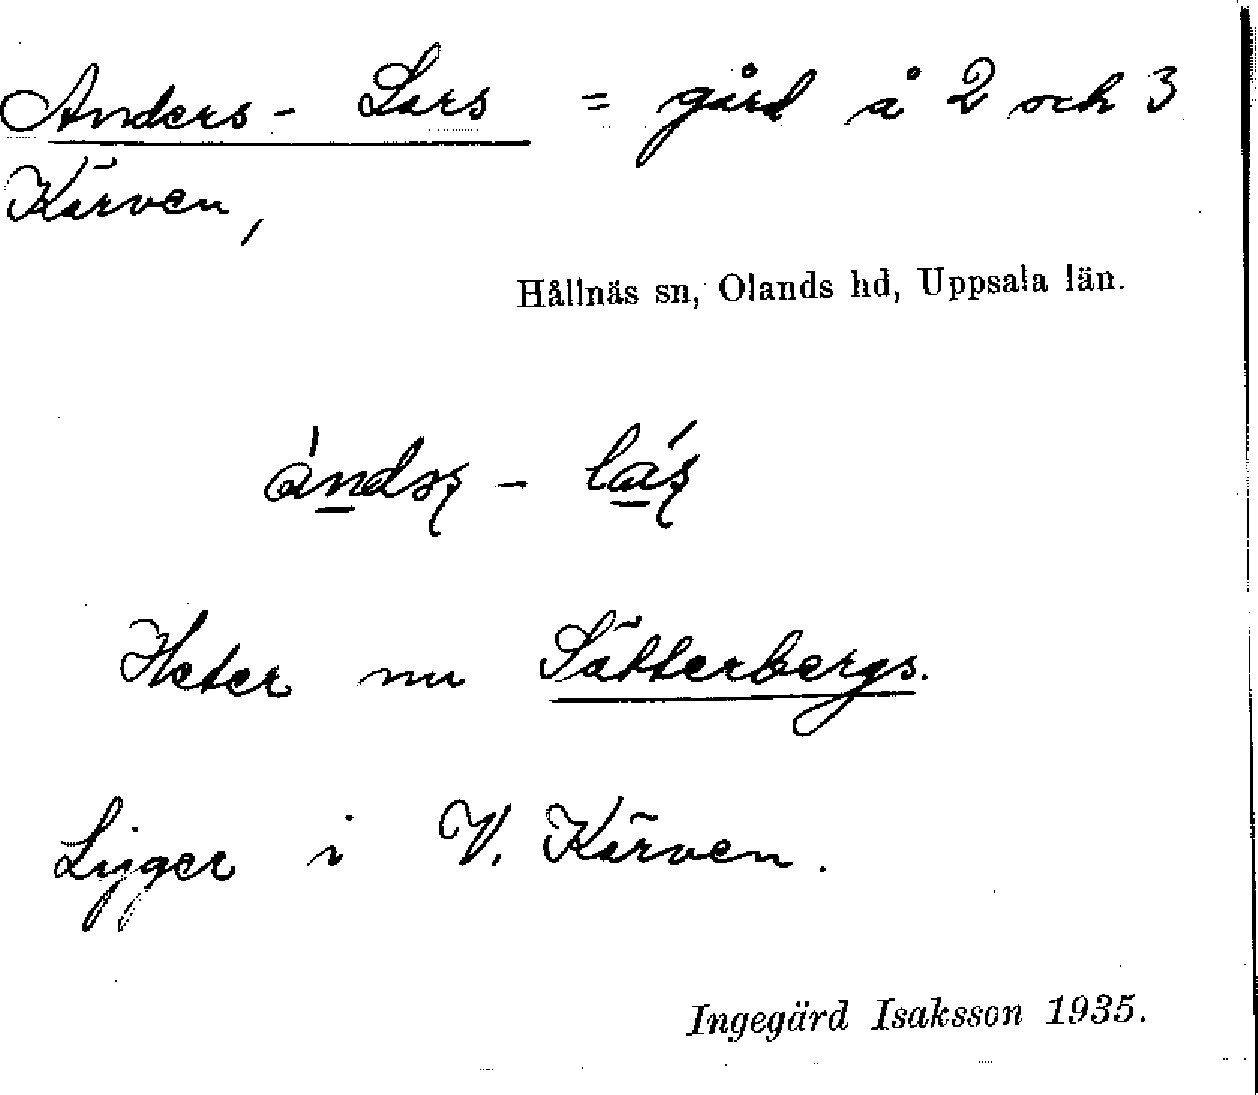 Anders - Lars = gård å 2 och 3
Kärven,
Hållnäs sn, Olands hd, Uppsala län.
Heter nu Sätterbergs.
Ligger i V. Kärven.
Ingegärd Isaksson 1935.